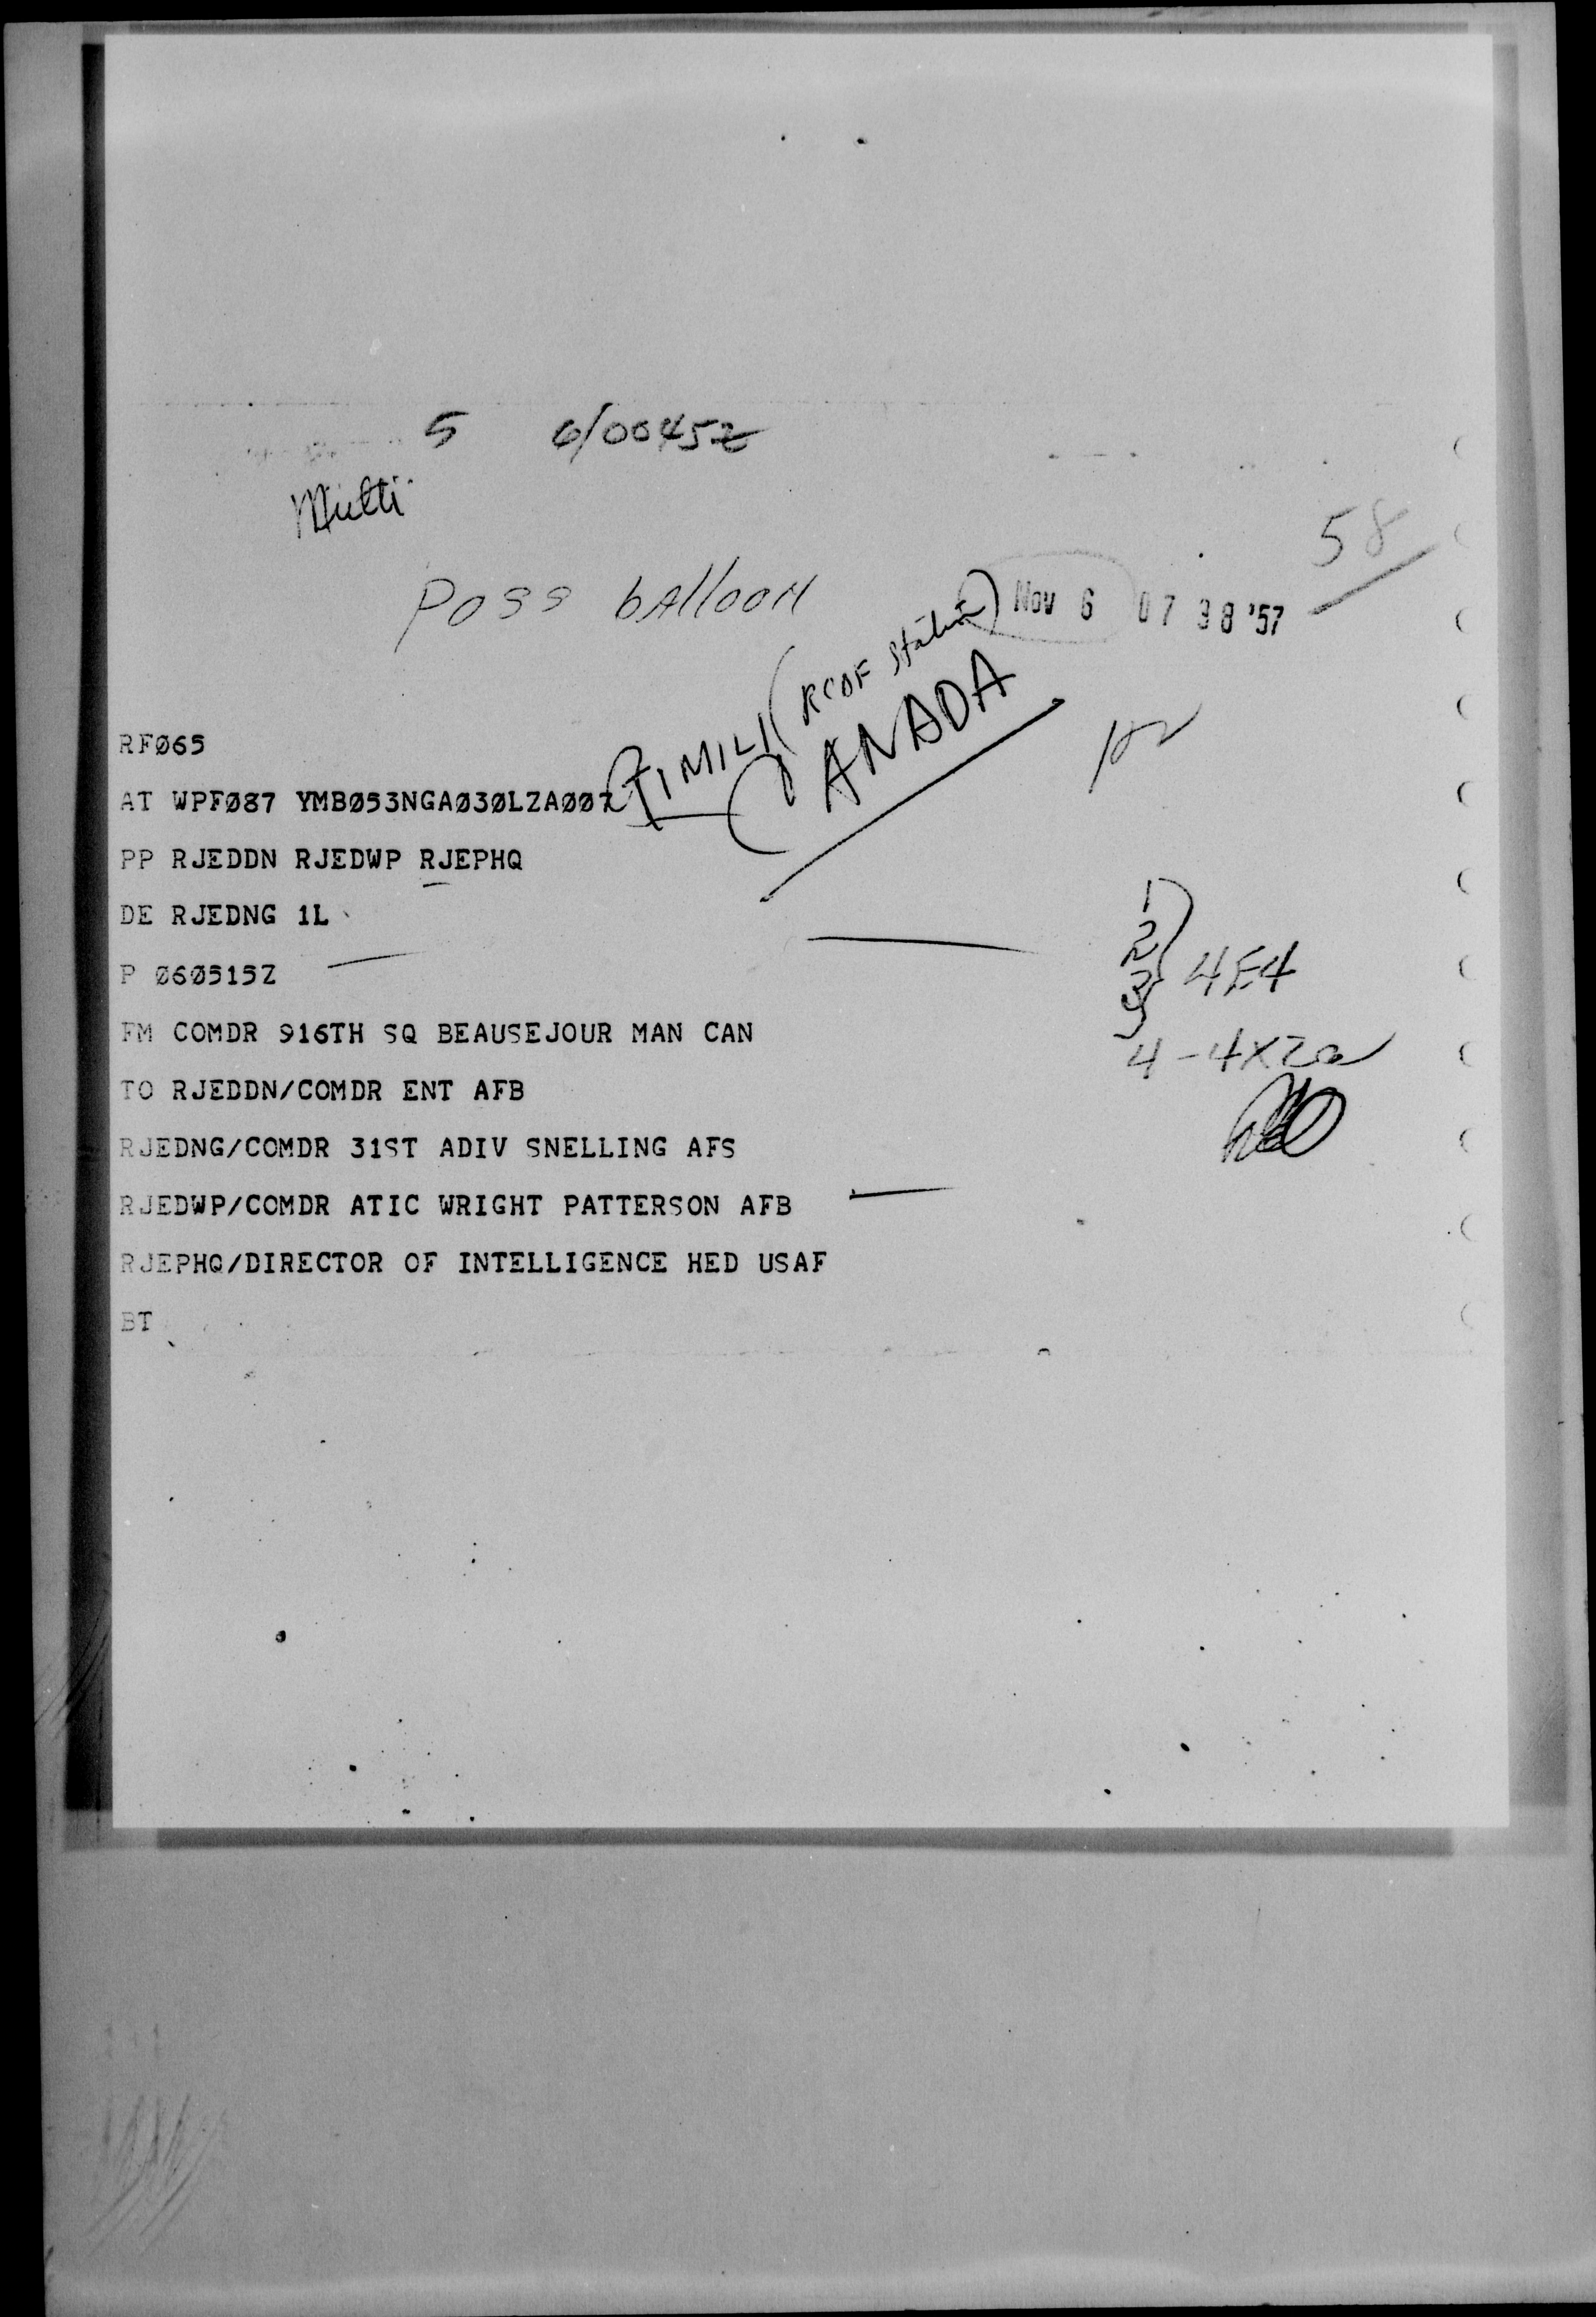 5 6/0045Z
Multi
58
Poss balloon
Nov 6 07 38 '57
GIMILI (RCAF Station)
CANADA
RFØ65
AT WPFØ87 YMBØ53NGAØ3ØLZAØØ7
PP RJEDDN RJEDWP RJEPHQ
DE RJEDNG 1L
P Ø6Ø515Z
FM COMDR 916TH SQ BEAUSEJOUR MAN CAN
TO RJEDDN/COMDR ENT AFB
RJEDNG/COMDR 31ST ADIV SNELLING AFS
RJEDWP/COMDR ATIC WRIGHT PATTERSON AFB
RJEPHQ/DIRECTOR OF INTELLIGENCE HED USAF
BT
1
2
3
4E4
4-4X2a